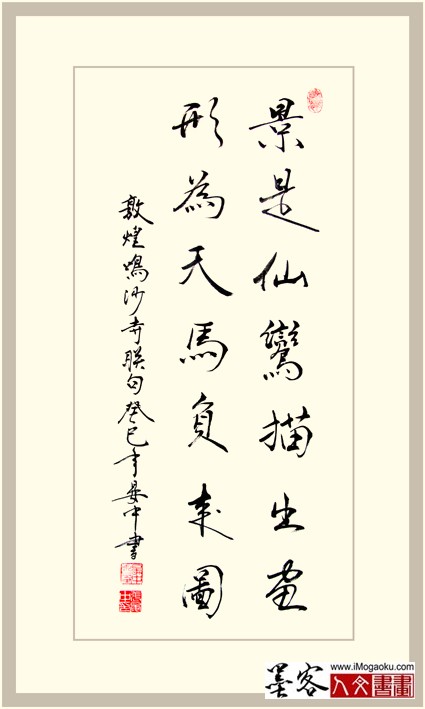 景是仙鸞描出画
形為天馬負来圖
敦煌鳴沙寺联句癸巳年晏中書
墨客
www.iMogaoku.com
人文書畫